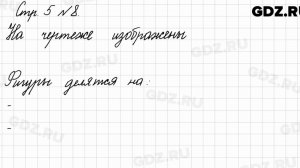 GDZ.RU
Стр. 5 №8.
На чертеже изображены
Фигуры делятся на:
-
-